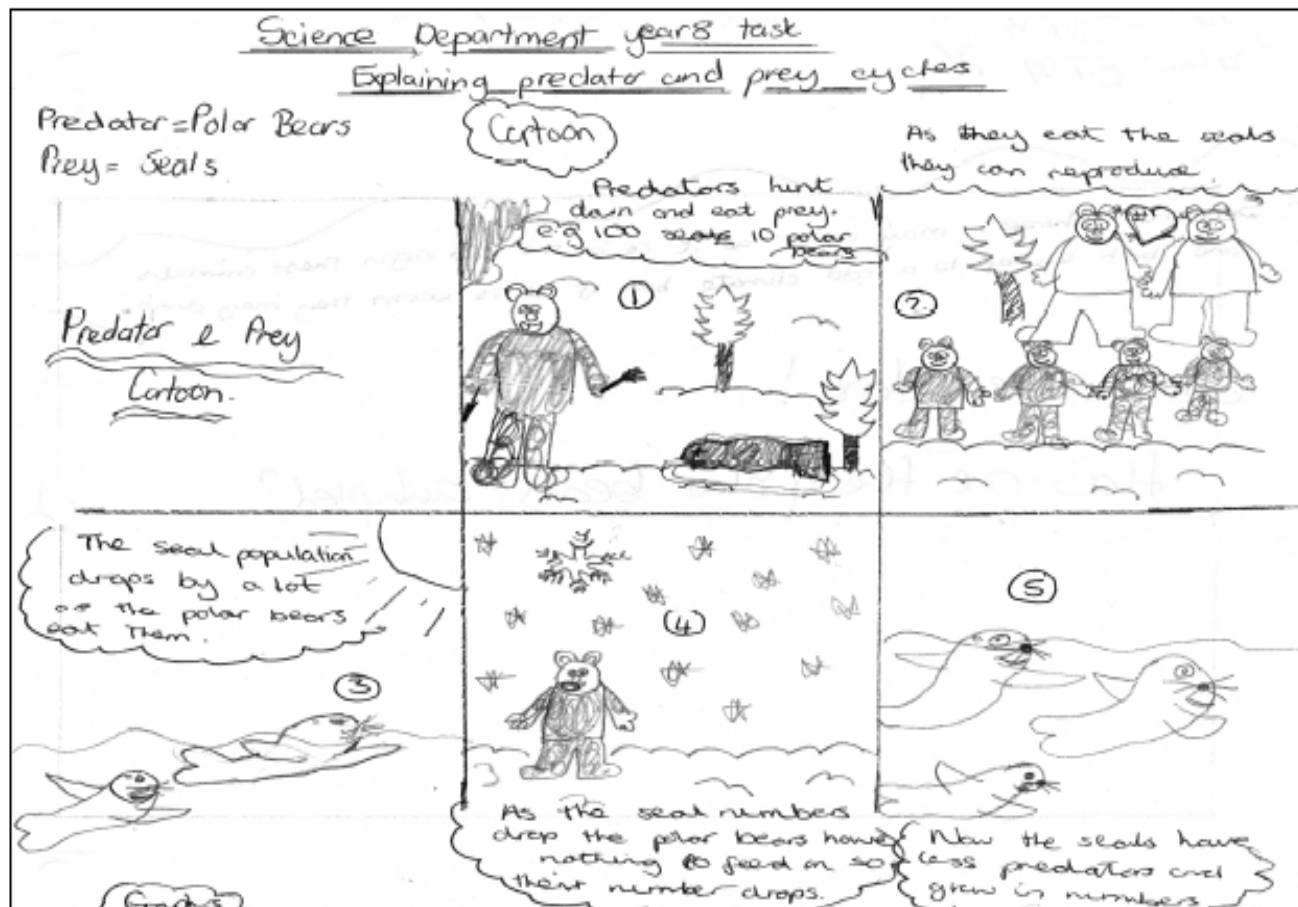 Science Department year 8 task
Explaining predator and prey cycles
Predator = Polar Bears
Prey = Seals
Cartoon
As they eat the seals
they can reproduce.
Predator & Prey
Cartoon.
Predators hunt
down and eat prey.
e.g 100 seals 10 polar
bears
1
2
The seal population
drops by a lot
as the polar bears
eat them.
3
4
As the seal numbers
drop the polar bears have
nothing to feed on so
their number drops.
5
Now the seals have
less predators and
grow in numbers